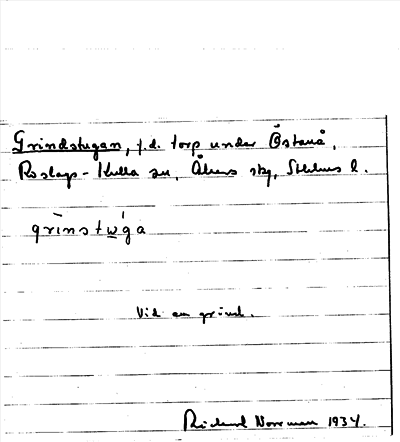 Grindstugan, f.d. torp under Östanå,
Roslags-Kulla sn, Åkers skg, Sthlms l.
grīnstẉ́ga
Vid en grind.
Rickard Norrman 1934.